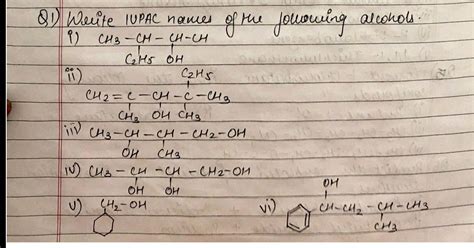 Q1) Write IUPAC names of the following alcohols.
i) CH3 - CH - CH - CH
C2H5 OH
ii) C2H5
CH2 = C - CH - C - CH3
CH3 OH CH3
iii) CH3 - CH - CH - CH2 - OH
OH CH3
iv) CH3 - CH - CH - CH2 - OH
OH OH
v) CH2 - OH
OH
vi) CH - CH2 - CH - CH3
CH3